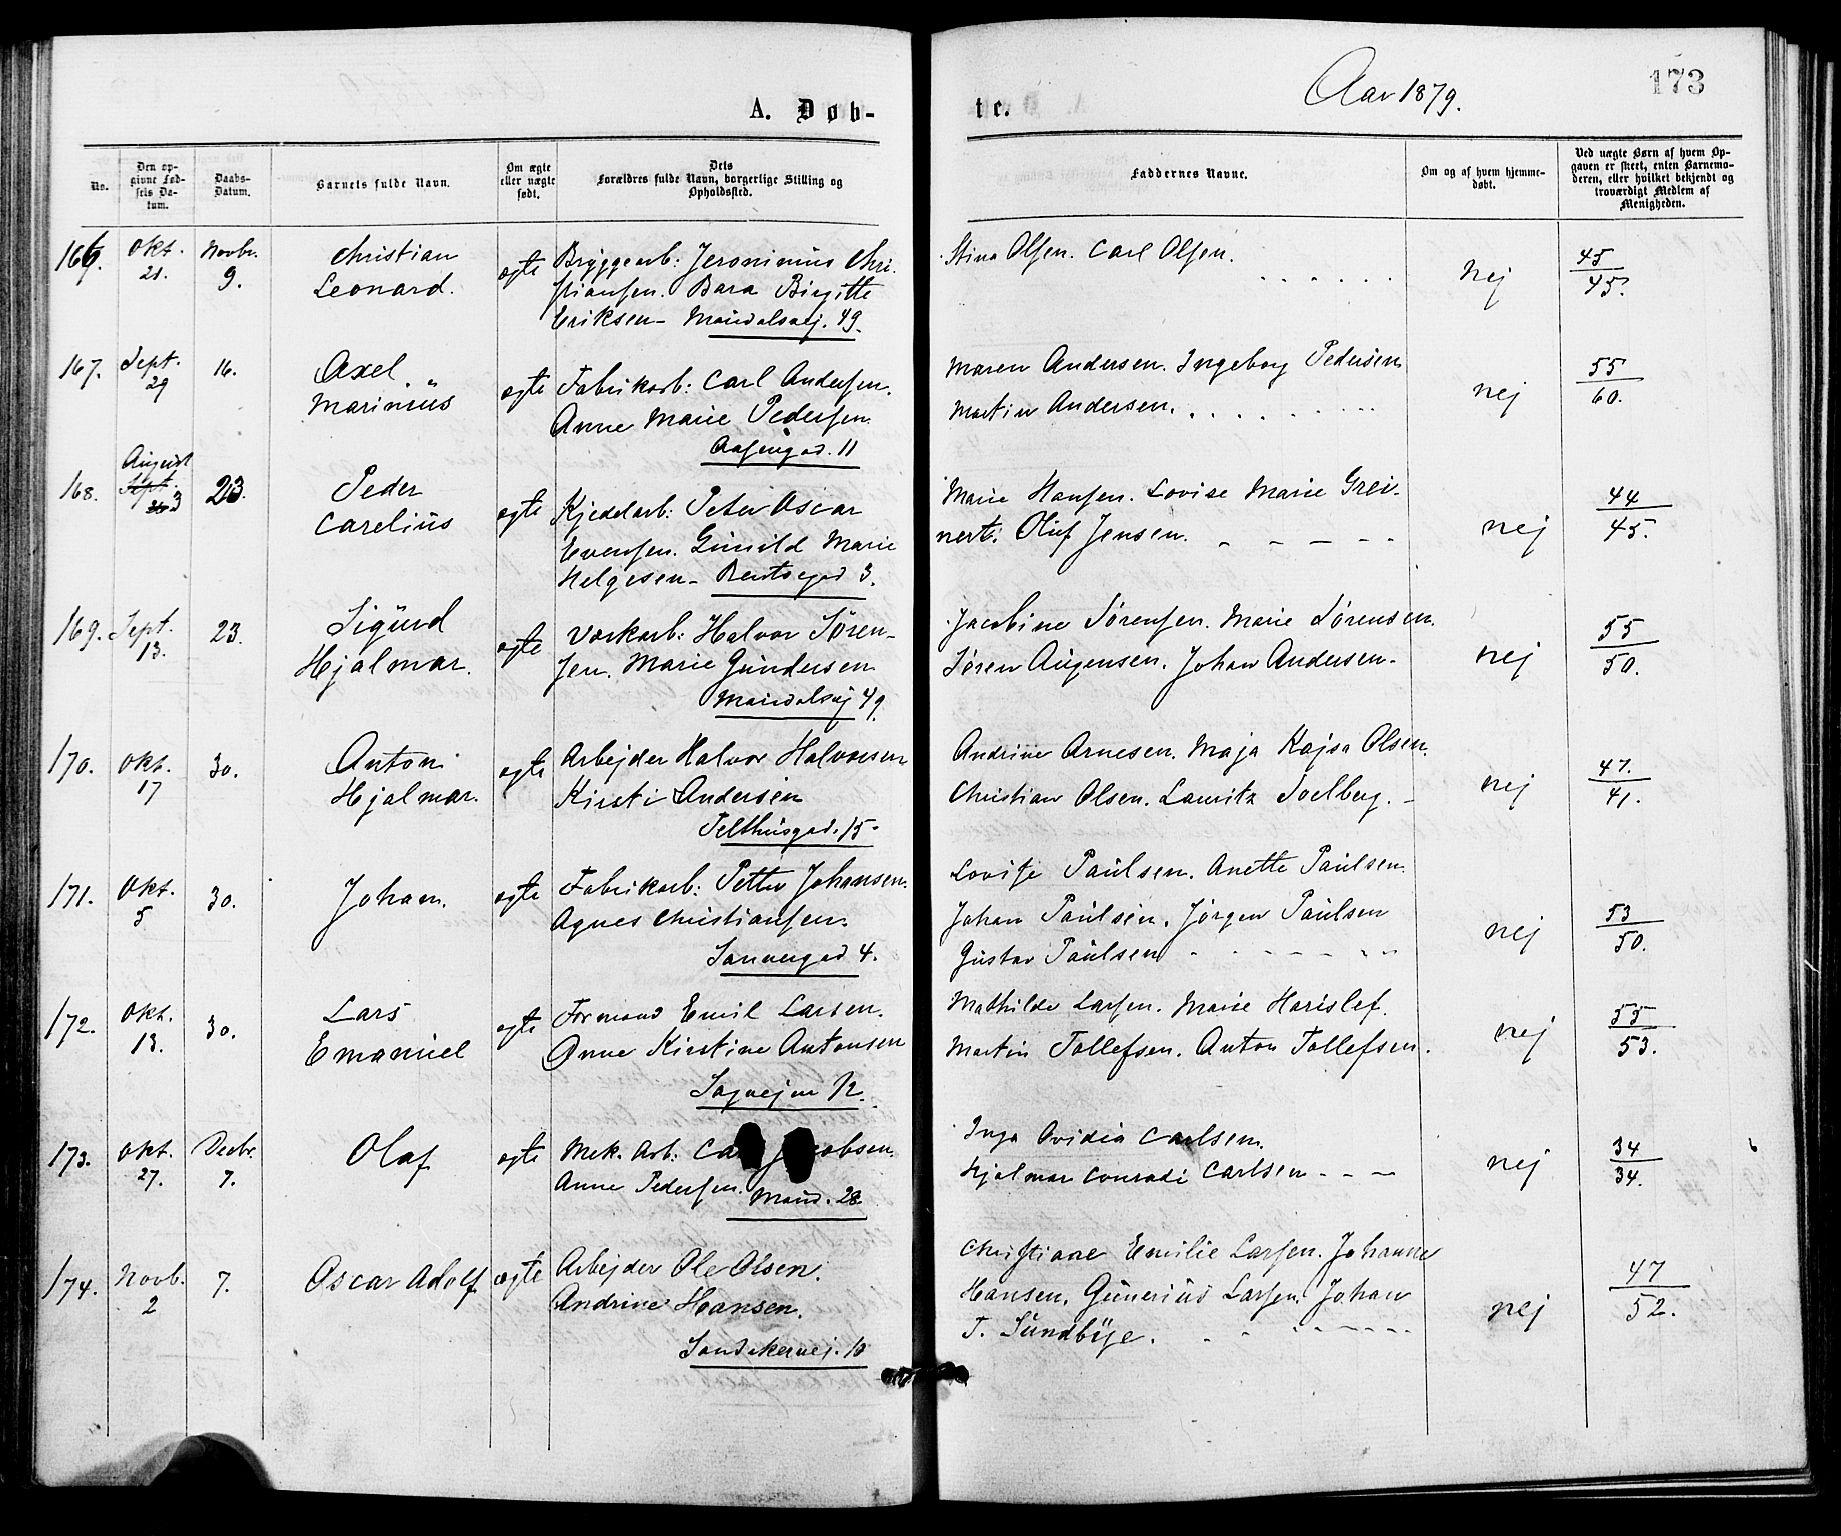 A. Døb-
te.
Aar 1879.
173
No.
Den op-
givne Fød-
sels Da-
tum.
Daabs-
Datum.
Barnets fulde Navn.
Om ægte
eller uægte
født.
Dets
Forældres fulde Navn, borgerlige Stilling og
Opholdssted.
Faddernes Navne.
Om og af hvem hjemme-
døbt.
Ved uægte Børn af hvem Op-
gaven er skeet, enten Barnemo-
deren, eller hvilket bekjendt og
troværdigt Medlem af
Menigheden.
166.
Okt.
21.
Novbr.
9.
Christian
Leonard.
egte
Bryggearb: Jeronimus Chri-
stiansen. Bara Birgitte
Eriksen - Maridalsvej. 49.
Stina Olsen. Carl Olsen.
Nej
45
45.
167.
Sept.
29
16.
Axel
Marinius
egte
Fabrikarb: Carl Andersen.
Anne Marie Pedersen
Aasengad. 11
Maren Andersen. Ingeborg Pedersen
Martin Andersen.
nej
55
60.
168.
August
Sept.
3
23.
Peder
Carelius
egte
Kjedelarb: Peter Oscar
Evensen. Gunild Marie
Helgesen - Bentsegad 3.
Marie Hansen. Lovise Marie Grei-
nert. Oluf Jensen.
nej
44
45.
169.
Sept.
13.
23.
Sigurd
Hjalmar.
egte
Værkarb: Halvor Søren-
sen. Marie Gundersen
Maridalsvej 49.
Jacobine Sørensen. Marie Sørensen.
Søren Augensen. Johan Andersen.
nej
55
50.
170.
Okt.
17
30.
Anton
Hjalmar.
egte
Arbejder Halvor Halvorsen
Kirsti Andersen
Telthusgad. 15.
Andrine Arnesen. Maja Kajsa Olsen.
Christian Olsen. Lauritz Soelberg.
nej
47.
41.
171.
Okt.
5
30.
Johan.
egte
Fabrikarb: Petter Johansen.
Agnes Christiansen.
Sannergad 4.
Lovise Paulsen. Anette Paulsen.
Johan Paulsen. Jørgen Paulsen
Gustav Paulsen
nej
53
50.
172.
Okt.
13.
30.
Lars
Emanuel
egte
Formand Emil Larsen.
Anne Kirstine Antonsen
Sagvejen 12.
Mathilde Larsen. Marie Harislef.
Martin Tollefsen. Anton Tollefsen.
nej
55
53.
173.
Okt.
27.
Decbr.
7.
Olaf
egte
Mek. Arb: Ca obsen.
Anne Pedersen. Marid. 28
Inga Ovidia Carlsen.
Hjalmar Conradi Carlsen
nej
34
34.
174.
Novb.
2
7.
Oscar Adolf
ægte
Arbejder Ole Olsen.
Andrine Hansen.
Sandakervej. 10
Christiane Emilie Larsen. Johanne
Hansen. Gunerius Larsen. Johan
T. Sundbye.
nej
47
52.